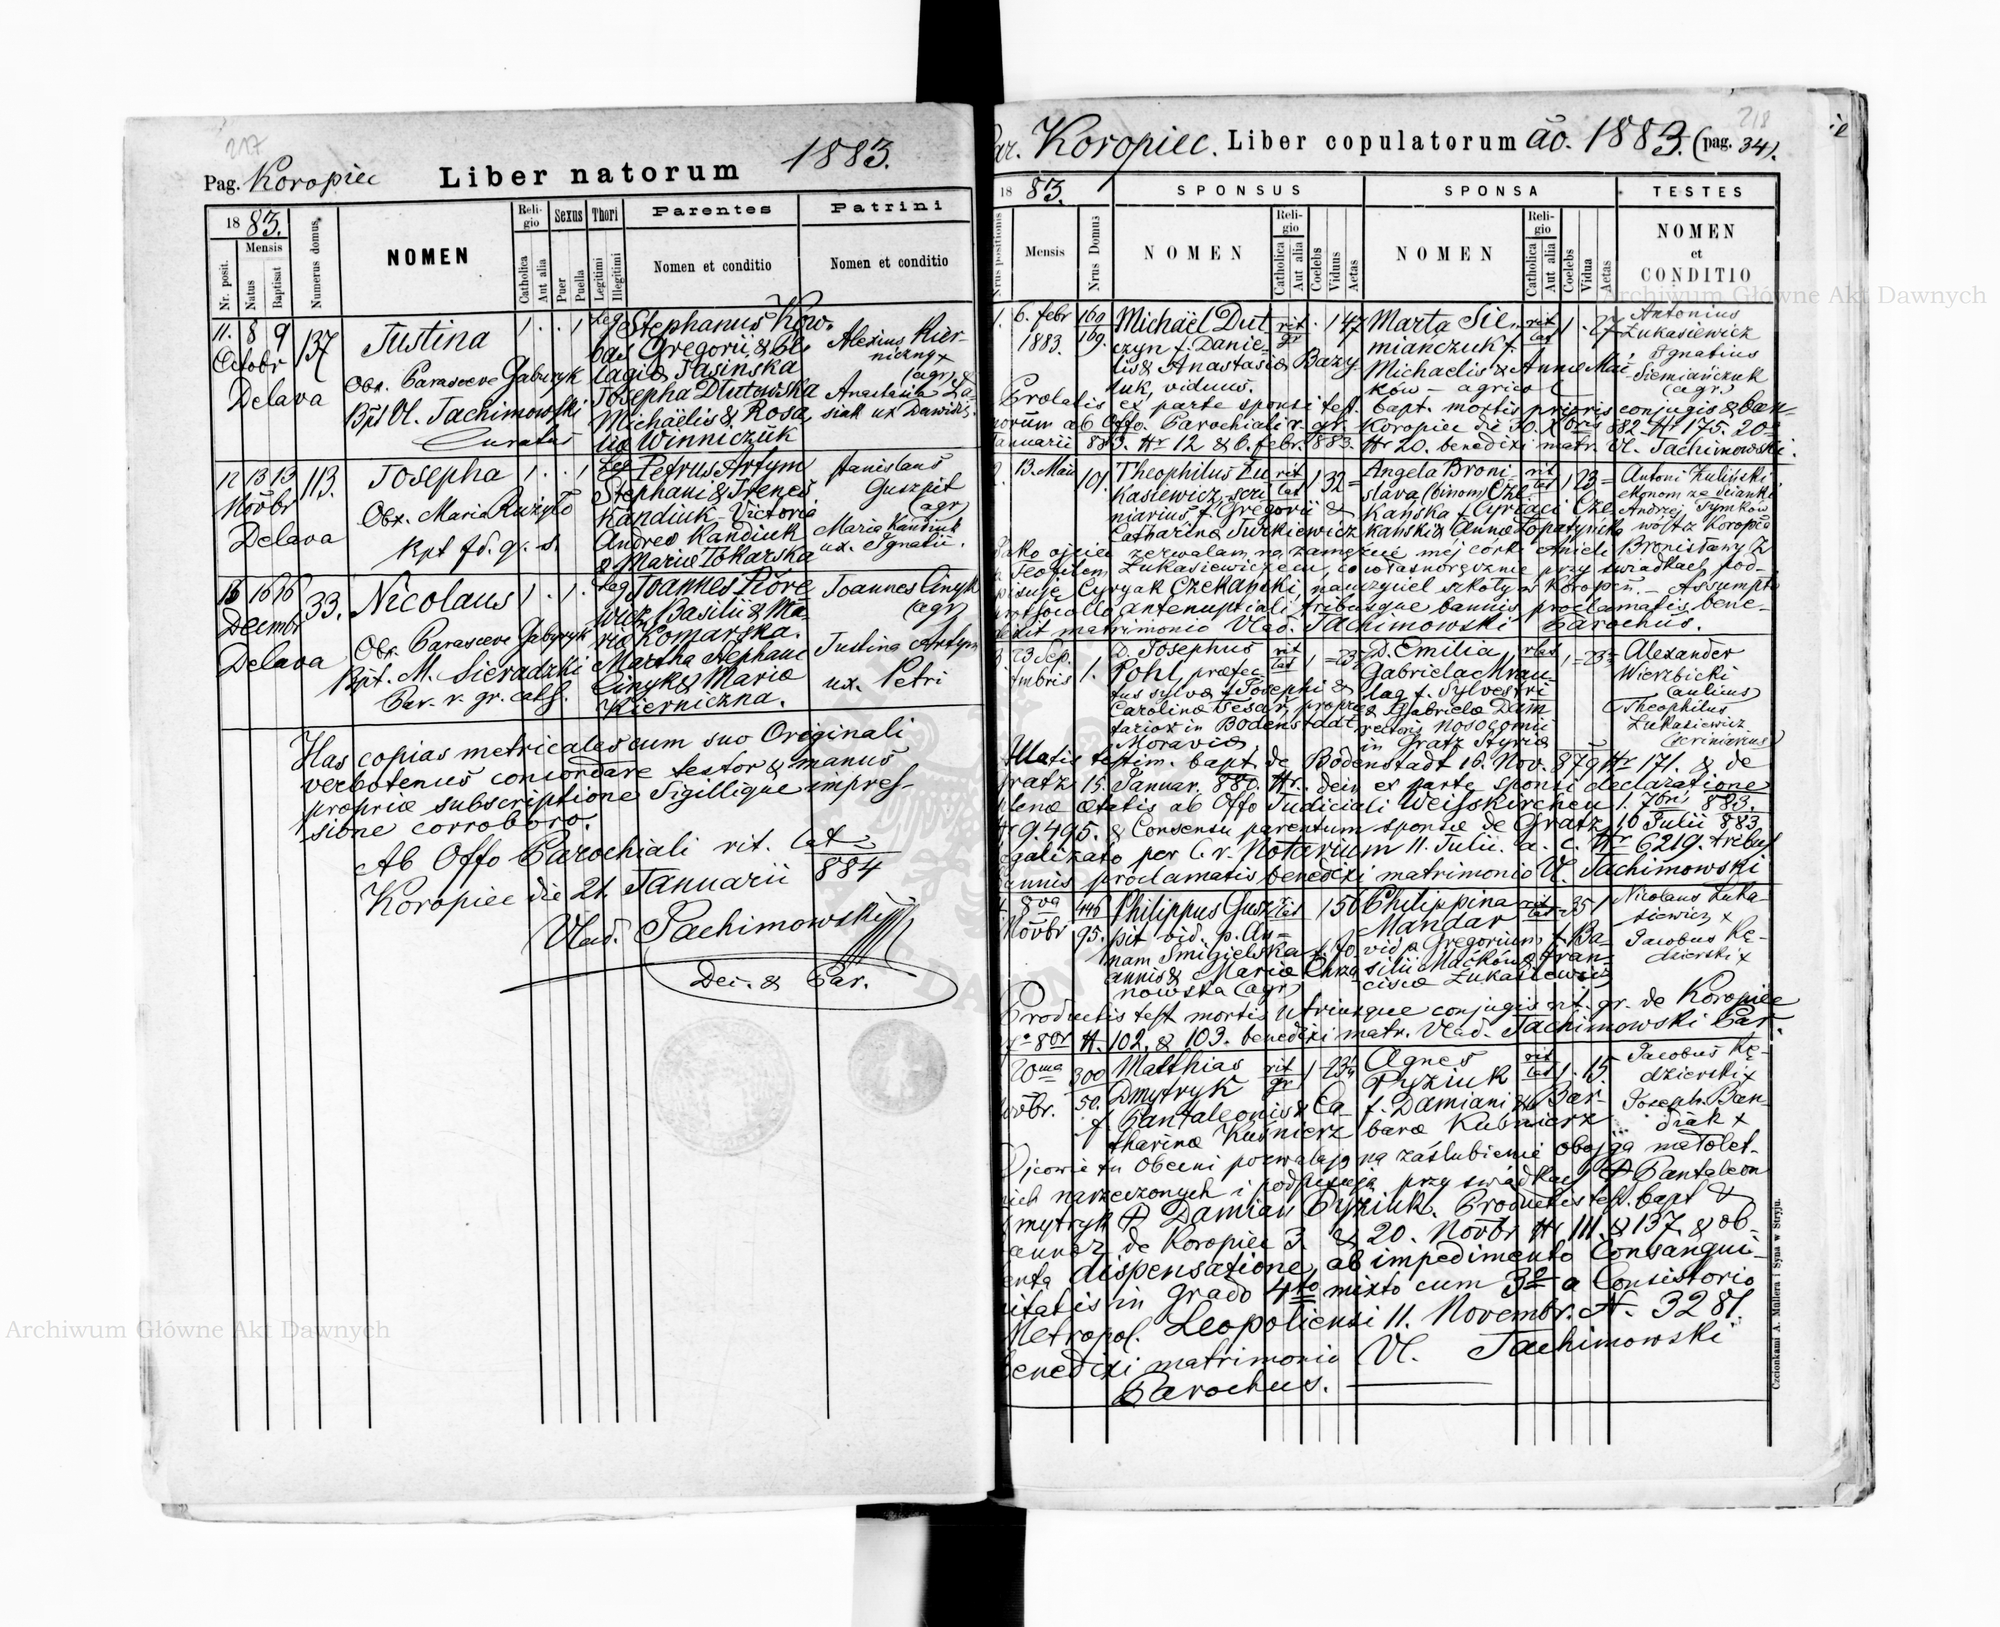 217
Pag. Koropiec Liber natorum 1883.
1883.
Nr. posit.
Mensis
Natus
Baptisat
Numerus domus.
NOMEN
Religio
Catholica
Aut alia
Sexus
Puer
Puella
Thori
Legitimi
Illegitimi
Parentes
Nomen et conditio
Patrini
Nomen et conditio
11. 8 9 137 Justina 1 . . 1 Leg Stephanus Kow.
Octobr
Delava
Obs. Parasceve Gabryk
Bpt Vl. Jachimowski
Curatus
bas Gregorii & Pe
lagia Jasinska
Josepha Dlutowska
Michaëlis & Rosa
lia Winniczuk
Alexius Kier-
niczny x
(agr) &
Anastasia
siak ux Dawidis.
12 13 13 113. Josepha 1 . . 1 Leg Petrus Artym
Novbr
Delava
Obs. Maria Ruzyło
Kpt fd. q. s.
Stephani & Irenes
Kandiuk - Victoria
Andrea Kandiuk
& Maria Tokarska
Stanislaus
Guszpit
(agr)
Maria Kandiuk
ux. Ignatii.
13 16 16 33. Nicolaus 1 . 1 . Leg Joannes Kore
Decembr
Delava
Obs. Parasceve Gabryk
Bpt. M. Sieradzki
Par. r. gr. cath.
wicz Basilii & Ma-
ria Komarska.
Martha Stephani
Cinyk & Maria
Kierniczna.
Joannes Cinyk
(agr)
Justina Artym
ux. Petri
Has copias metricales cum suo Originali
verbotenus concordare testor & manus
propria subscriptione Sigillique impres-
sione corroboro.
Ab Offo Parochiali rit. lat.
Koropiec die 21. Januarii 884
Vlad. Jachimowski
Dec. & Par.
218
Par. Koropiec. Liber copulatorum ao. 1883. (pag. 34).
1883.
SPONSUS
SPONSA
TESTES
Nrus positionis
Mensis
Nrus Domus
NOMEN
Religio
Catholica
Aut alia
Coelebs
Viduus
Aetas
NOMEN
Religio
Catholica
Aut alia
Coelebs
Vidua
Aetas
NOMEN
et
CONDITIO
1. 6. febr
1883.
160
109.
Michaël Dut
czyn f. Danie-
lis & Anastasia Bazy
luk, viduus.
rit
gr
. 1 47
Marta Sie-
miańczuk f.
Michaelis & Anna Mać
ków - agrico
rit
lat
Antonius
Łukasiewicz
Ignatius
Siemiańczuk
(agr.)
Prolatis ex parte sponsi test. bapt. mortis prioris conjugis & ban-
norum ab Offo. Parochiali r. gr. Koropiec de 30. Xbris 882. Nr 175. 20
Januarii 883. Nr 12 & 6. febr. 1883. Nr 20. benedixi matr. Vl. Jachimowski.
2. 13. Maii 101. Theophilus Łu
kasiewicz scri
niarius f. Gregorii &
Catharina Turkiewicz
rit
lat
1 32
Angela Broni-
slava (binom) Cze
kańska f. Cyriaci Cze
kański & Anna Łopatyńska
rit
lat
1 23
Antoni Zuliński
ekonom ze Scianki
Andrzej Tymków
wójt z Koropca
Jako ojciec zezwalam na zamęzcie mej córki Anieli Bronisławy z
p. Teofilem Łukasiewiczem, co własnoręcznie przy świadkach pod-
pisuję Cyryak Czekański, nauczyciel szkoły w Koropcu. - Assumpto
protocollo antenuptiali tribusque bannis proclamatis bene-
dixit matrimonio Vlad. Jachimowski Parochus.
3. 23 Sep.
tmbris
1.
D. Josephus
Pohl, præfec
tus sylvæ f. Josephi &
Carolina Tesar, proprie
tarior in Bodenstadt
Moravia
rit
lat
D. Emilia
Gabriela Mrau-
lag f. Sylvestri
& Gabriela Dam
rectoris Nosocomii
in Gratz Styria
rlat
Alexander
Wierzbicki
(aulicus)
Theophilus
Łukasiewicz
(scriniarius)
Allatis testim. bapt. de Bodenstadt 16. Nov. 879 Nr 171. & de
Gratz 15. Januar. 880. Nr. dein ex parte sponsi declaratione
plenæ ætatis ab Offo Judiciali Weisskirchen 1. 7bris 883.
Nr 9.495. & Consensu parentum sponsæ de Gratz 10 Julii 883
legalizato per C. r. Notarium 11. Julii. a. c. Nr 6219. tribus
bannis proclamatis benedixi matrimonio Vl. Jachimowski
8va
Novbr
446
95.
Philippus Gusz
pit vid. p. An-
nam Smigielska f. Jo
annis & Maria Chrza
nowska (agr)
rit
lat
1 50
Philippina
Mandar
vid. p. Gregorium f. Ba-
silii Maćków & Fran-
cisca Łukasiewicz
35 1
Nicolaus Łuka-
siewicz x
Jacobus Kę-
dzierski x
Productis test mortis utriusque conjugis rit. gr. de Koropiec
8br N. 102. & 103. benedixi matr. Vlad. Jachimowski Par.
20ma
Novbr.
300
50.
Matthias
Dmytryk
f. Pantaleonis & Ca-
tharina Kuśnierz
rit
gr
1 23
Agnes
Pyziuk
f. Damiani & Bar-
bara Kuśnierz
rit
lat
1 . 15
Jacobus Kę-
dzierski x
Joseph Ban-
drak x
Ojcowie tu obecni pozwalają na zaślubienie obojga małolet-
nich narzeczonych i podpisują przy swiadkach + Pantaleon
Dmytryk + Damian Pyziuk. Productis test. bapt &
bannor. de Koropiec 3. & 20. Novbr Nr 111. & 137. & ob-
tenta dispensatione ab impedimento Consangui-
nitatis in grado 4to mixto cum 3o a Consistorio
Metropol. Leopoliensi 11. Novembr. N. 3281.
benedixi matrimonio Vl. Jachimowski
Parochus.
Czcionkami A. Müllera i Syna w Stryju.
Archiwum Główne Akt Dawnych
Archiwum Główne Akt Dawnych